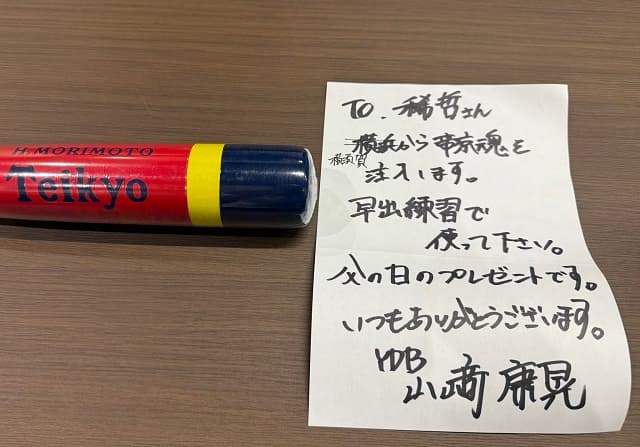 H. MORIMOTO
Teikyo
TO. 稀哲さん
横浜から帝京魂を
横須賀
注入します。
早出練習で
使って下さい。
父の日のプレゼントです。
いつもありがとうございます。
YDB
山﨑康晃